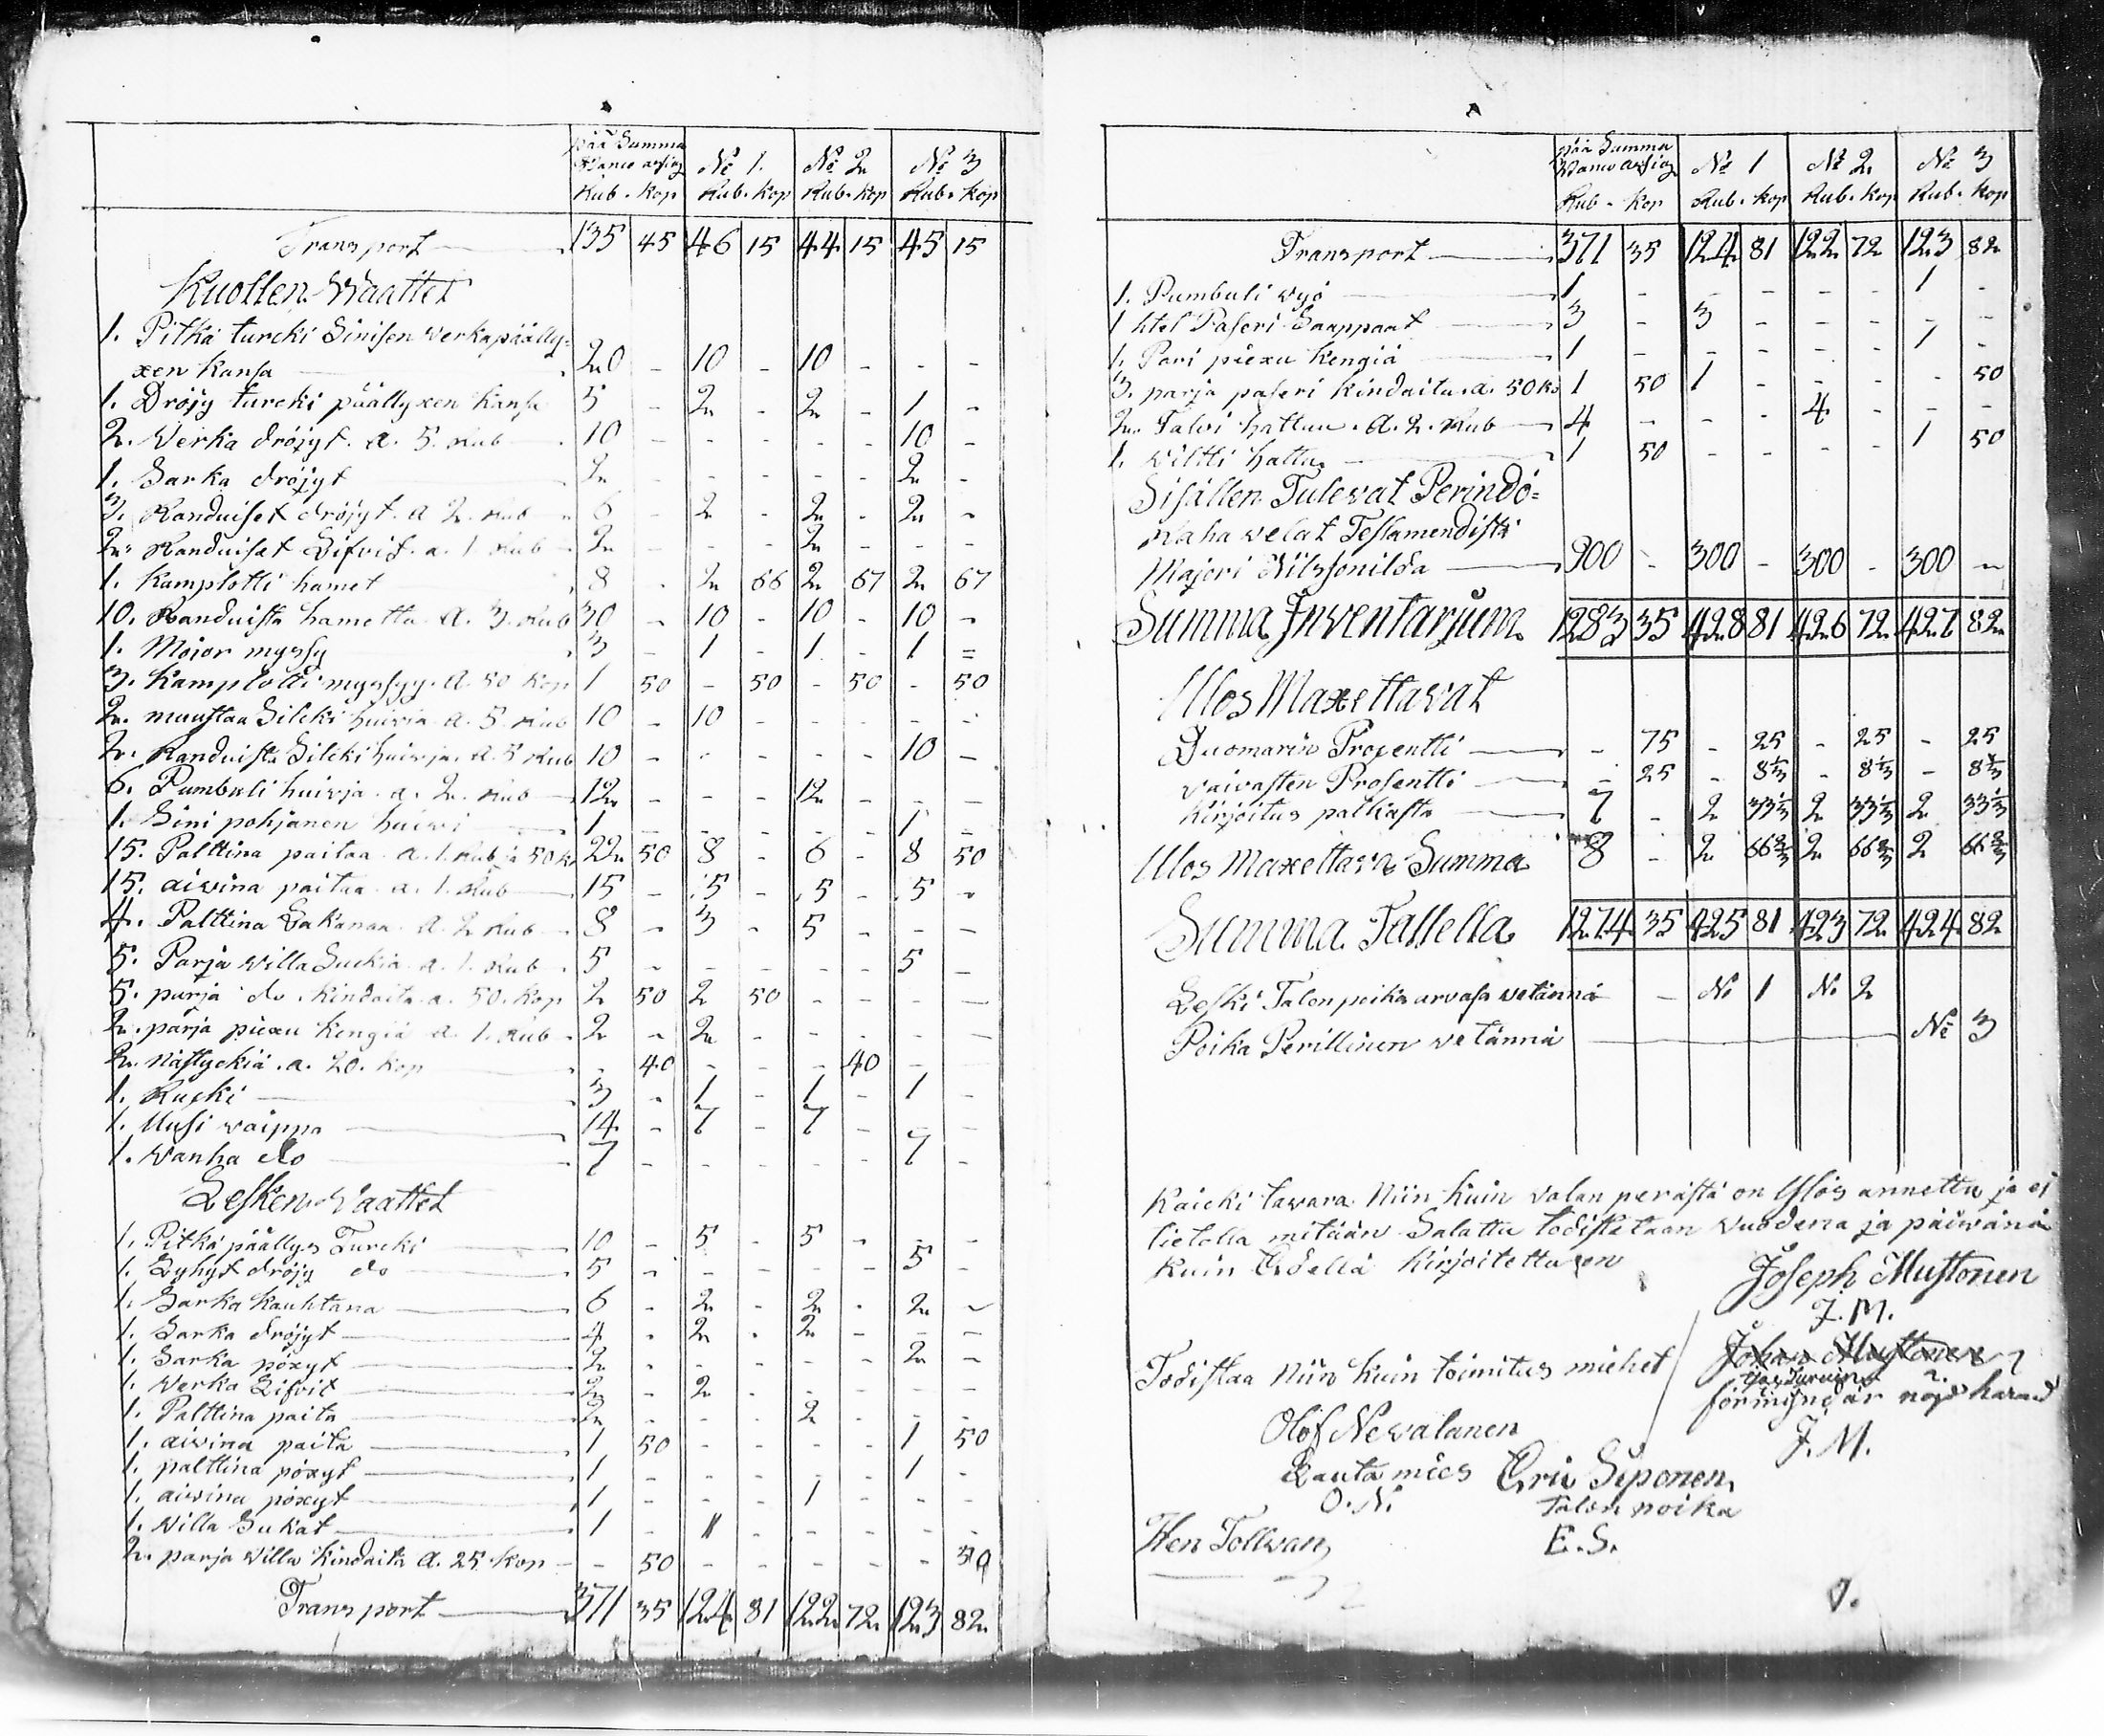 pää Summa
Wanco arfiog № 1. № 2 № 3
Rub. kop Rub. kop Rub. kop Rub. kop
Transport 135 45 46 15 44 15 45 15
Kuollen Waattet
1. Pitkä turcki Sinisen verkapäälly-
xen kansa 20 - 10 - 10 - - -
1. Dröjy turcki päällyxen kansa 5 - 2 - 2 - 1 -
2. Werka dröjyt. a. 5. Rub 10 - - - - - 10 -
1. Sarka dröjyt 2 - - - - - 2 -
3. Randuiset dröjyt. a 2. Rub 6 - 2 - 2 - 2 -
2. Randuisat Lifvit. a. 1. Rub 2 - - - 2 - - -
1. Kamplotti hamet 8 - 2 66 2 67 2 67
10. Randuista hametta. a. 3. Rub 30 - 10 - 10 - 10 -
1. Moior myssy 3 - 1 - 1 - 1 =
3. Kamplotti myssyy. a. 50 kop 1 50 - 50 - 50 - 50
2. muustaa Silcki huivia. a. 5. Rub 10 - 10 - - - - -
2. Randuista Silcki huivja. a. 5 Rub 10 - - - - - 10 -
6. Pumbuli huivja. a. 2. Rub 12 - - - 12 - - -
1. Sini pohjanen huivi 1 - - - - - 1 -
15. Palttina paitaa. a. 1. Rub ja 50 k 22 50 8 - 6 - 8 50
15. aivina paitaa. a. 1. Rub 15 - 5 - 5 - 5 -
4. Palttina Lakanaa. a. 2 Rub 8 - 3 - 5 - - -
5. Parja villa Suckia. a. 1. Rub 5 - - - - - 5 -
5. parja do kindaita. a. 50. kop 2 50 2 50 - - - -
2. parja piexu kengiä a. 1. Rub 2 - 2 - - - - -
2. nästyckiä. a. 20. kop - 40 - - - 40 - -
1. Ruski 3 - 1 - 1 - 1 -
1. Uusi vaippa 14 - 7 - 7 - - -
1. Wanha do 7 - - - - - 7 -
Lesken Vaattet
1. Pitkä päällys Turcki 10 - 5 - 5 - - -
1. Lyhyt dröjy do 5 - - - - - 5 -
1. Sarka kauhtana 6 - 2 - 2 - 2 -
1. Sarka dröjyt 4 - 2 - 2 - - -
1. Sarka pöxyt 2 - - - - - 2 -
1. Werka Lifvit 2 - 2 - - - - -
1. Palttina paita 2 - - - 2 - - -
1. aivina paita 1 50 - - - - 1 50
1. palttina pöxyt 1 - - - - - 1 -
1. aivina pöxyt 1 - - - 1 - - -
1. Villa Sukat 1 - 1 - - - - -
2. parja villa kindaita a. 25 kop - 50 - - - - - 50
Transport 371 35 124 81 122 72 123 82
pää Summa
№ 1 № 2 № 3
Rub. kop Rub. kop Rub. kop Rub. kop
Transport 371 35 124 81 122 72 123 82
1. Pumbuli vyö 1 - - - - - 1 -
1 htel Paseri Saappaat 3 - 3 - - - - -
1. Pari piexu kengiä 1 - - - - - 1 -
3. parja paseri kindaita. a. 50 ko 1 50 1 - - - - 50
2. Talvi hattuu. a. 2. Rub 4 - - - 4 - - -
1. viltti hattu 1 50 - - - - 1 50
Sisällen Tulevat Perindö=
Raha velat Testamendistä
Majori Nilssonilda 900 - 300 - 300 - 300 -
Summa Inventarjum 1283 35 428 81 426 72 427 82
Ulos Maxettavat
Duomarin Prosentti - 75 - 25 - 25 - 25
vaivasten Prosentti - 25 - 8⅓ - 8⅓ - 8⅓
Kirjoitus palkasta 7 - 2 33⅓ 2 33⅓ 2 33⅓
Ulos Maxettava Summa 8 - 2 66⅔ 2 66⅔ 2 66⅔
Summa Tallella 1274 35 425 81 423 72 424 82
Leski Talon poika arvasa vetännä № 1 № 2
Poika Perillinen vetännä № 3
Kaicki tavara Niin kuin valan perästä on Ylös annettu ja ei
tietolla mitään Salattu todistetaan vuodena ja päivänä
kuin Edellä kirjoitettu on
Joseph Mustonen
J. M.
Todistaa Niin kuin toimitus miehet
Johan Mustonen
J. M.
Olof Nevalanen
Lauta mies
O. N.
Eric Seponen
Talon poika
E. S.
Hen Tollvan